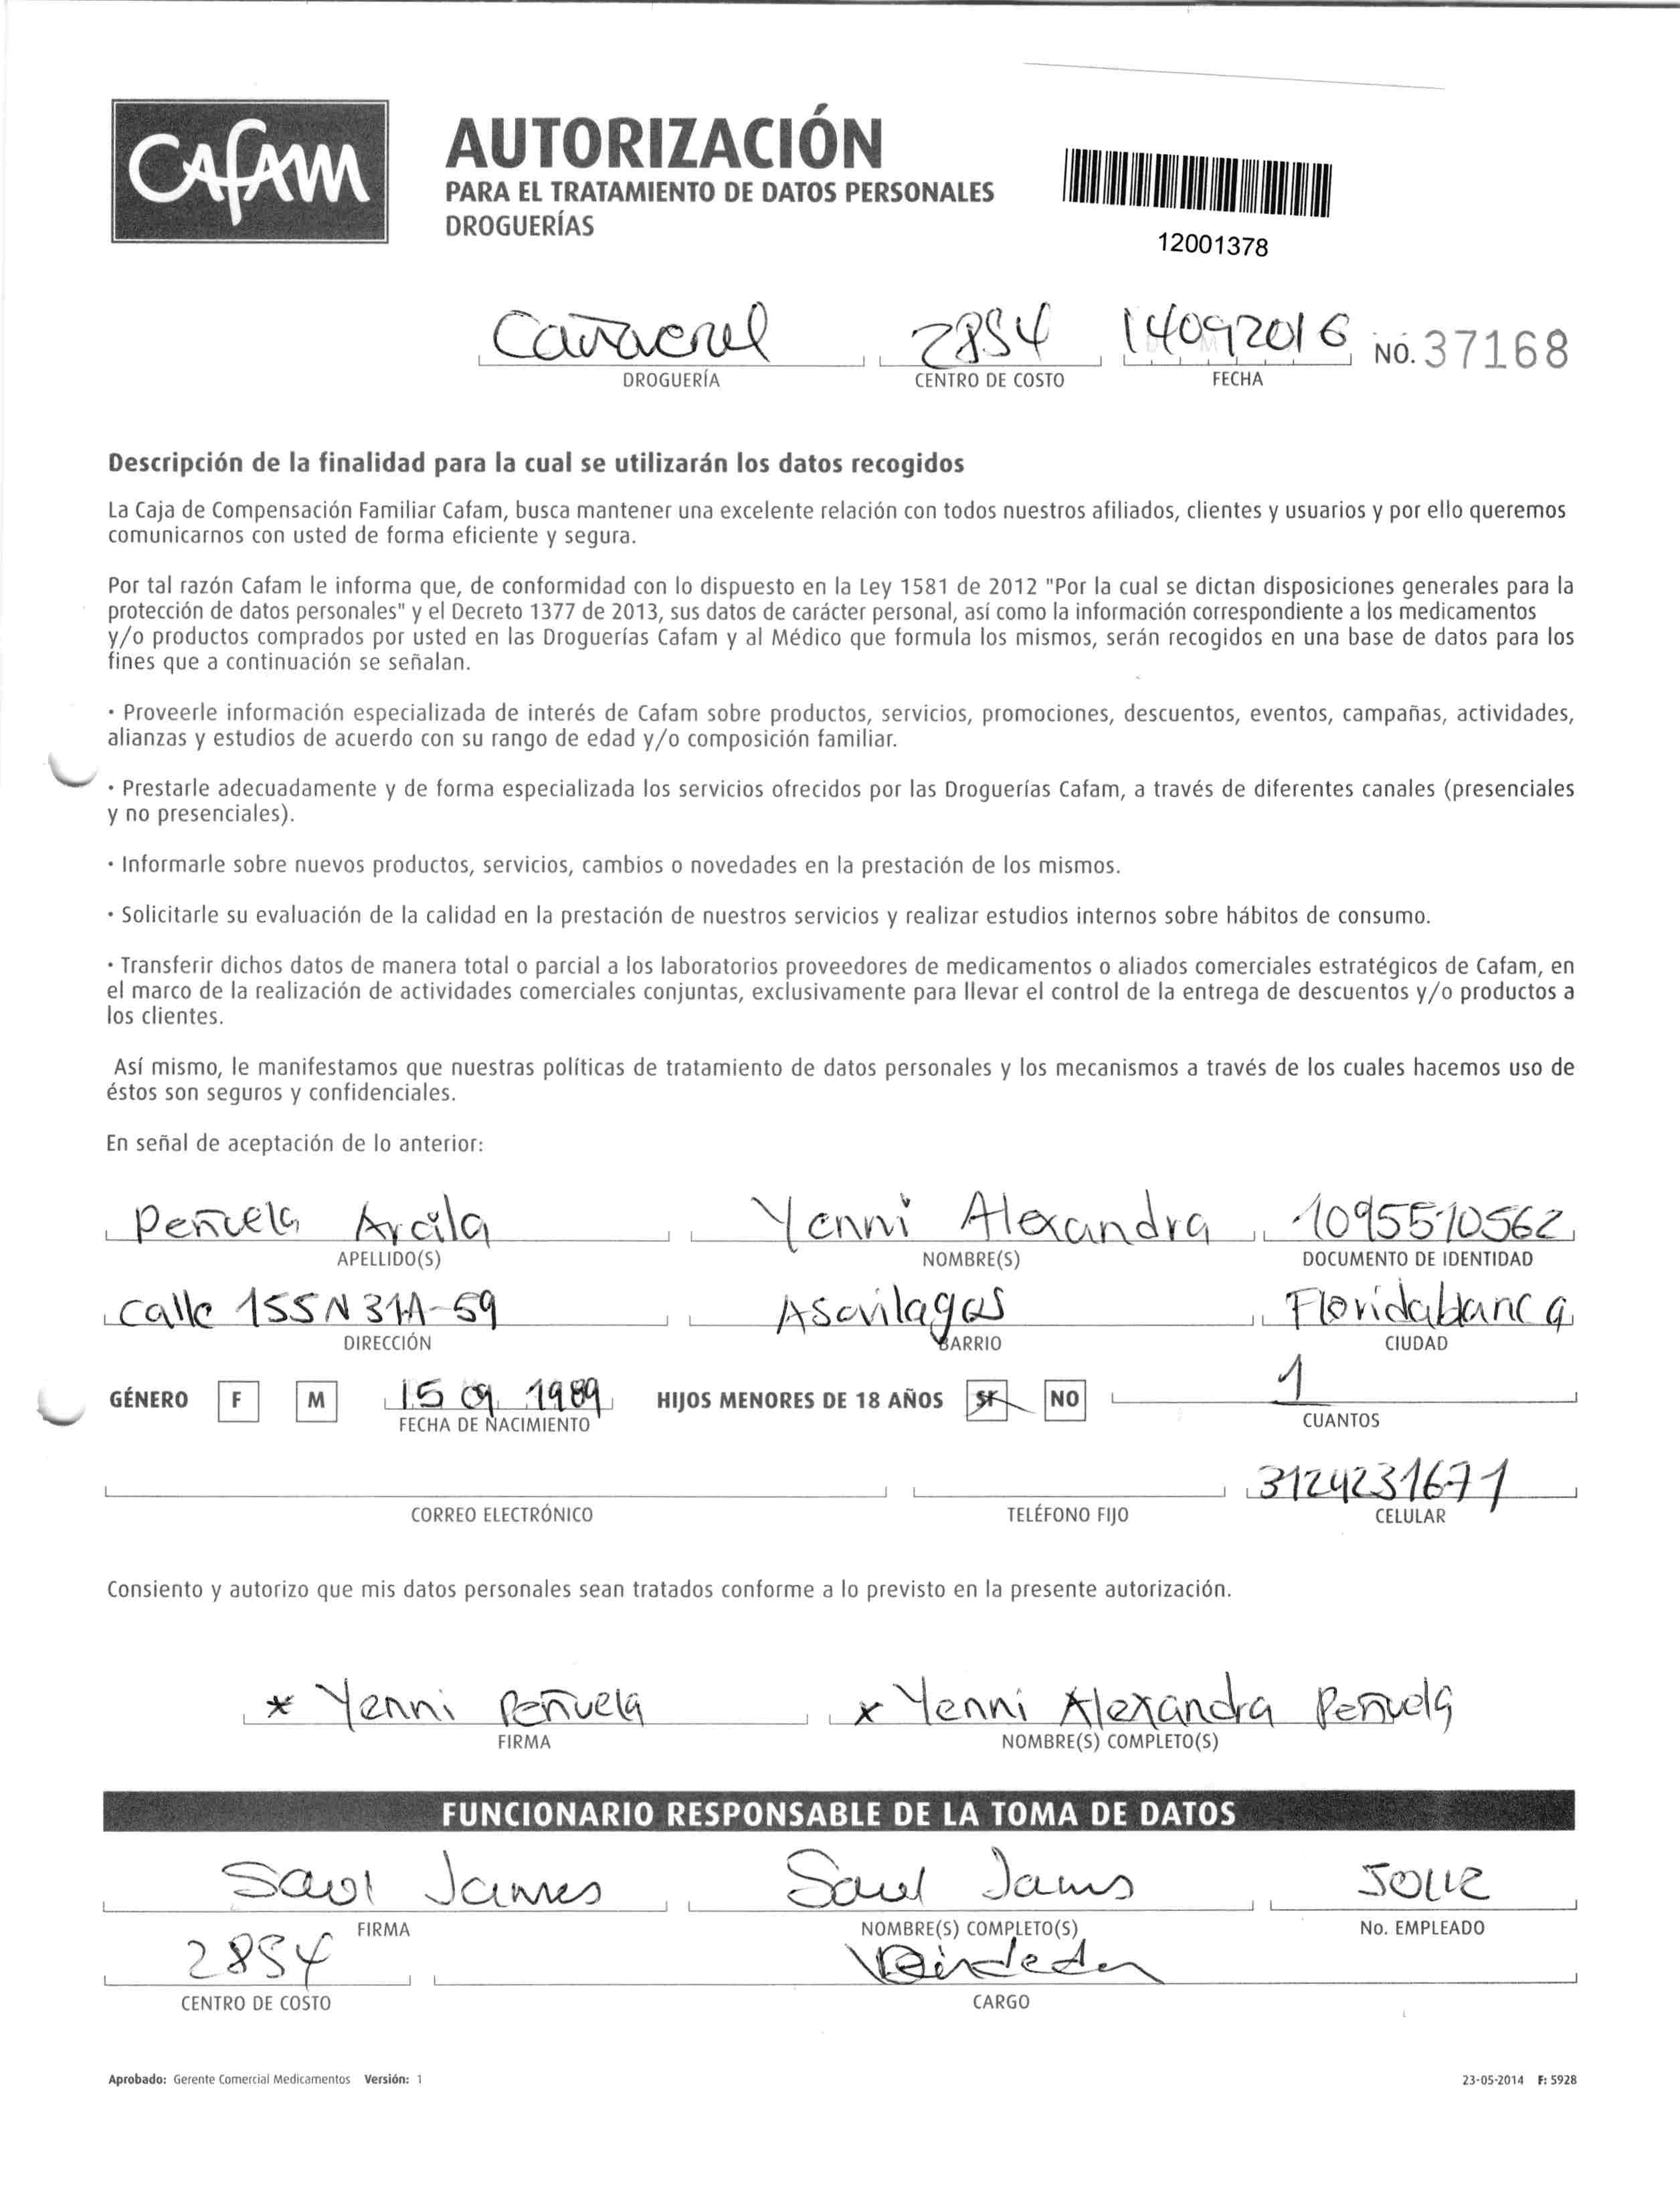 CAFAM
AUTORIZACIÓN
PARA EL TRATAMIENTO DE DATOS PERSONALES
DROGUERÍAS
12001378
Cañaveral 2854 14092016 NO. 37168
DROGUERÍA CENTRO DE COSTO FECHA
Descripción de la finalidad para la cual se utilizarán los datos recogidos
La Caja de Compensación Familiar Cafam, busca mantener una excelente relación con todos nuestros afiliados, clientes y usuarios y por ello queremos
comunicarnos con usted de forma eficiente y segura.
Por tal razón Cafam le informa que, de conformidad con lo dispuesto en la Ley 1581 de 2012 "Por la cual se dictan disposiciones generales para la
protección de datos personales" y el Decreto 1377 de 2013, sus datos de carácter personal, así como la información correspondiente a los medicamentos
y/o productos comprados por usted en las Droguerías Cafam y al Médico que formula los mismos, serán recogidos en una base de datos para los
fines que a continuación se señalan.
· Proveerle información especializada de interés de Cafam sobre productos, servicios, promociones, descuentos, eventos, campañas, actividades,
alianzas y estudios de acuerdo con su rango de edad y/o composición familiar.
· Prestarle adecuadamente y de forma especializada los servicios ofrecidos por las Droguerías Cafam, a través de diferentes canales (presenciales
y no presenciales).
· Informarle sobre nuevos productos, servicios, cambios o novedades en la prestación de los mismos.
· Solicitarle su evaluación de la calidad en la prestación de nuestros servicios y realizar estudios internos sobre hábitos de consumo.
· Transferir dichos datos de manera total o parcial a los laboratorios proveedores de medicamentos o aliados comerciales estratégicos de Cafam, en
el marco de la realización de actividades comerciales conjuntas, exclusivamente para llevar el control de la entrega de descuentos y/o productos a
los clientes.
Así mismo, le manifestamos que nuestras políticas de tratamiento de datos personales y los mecanismos a través de los cuales hacemos uso de
éstos son seguros y confidenciales.
En señal de aceptación de lo anterior:
Peñuela Arcila Yenni Alexandra 1095510562
APELLIDO(S) NOMBRE(S) DOCUMENTO DE IDENTIDAD
Calle 155 N 31A-59 Asovilagos Floridablanca
DIRECCIÓN BARRIO CIUDAD
GÉNERO F M 15 09 1989 HIJOS MENORES DE 18 AÑOS SI NO 1
FECHA DE NACIMIENTO CUANTOS
3124231671
CORREO ELECTRÓNICO TELÉFONO FIJO CELULAR
Consiento y autorizo que mis datos personales sean tratados conforme a lo previsto en la presente autorización.
* Yenni Peñuela x Yenni Alexandra Peñuela
FIRMA NOMBRE(S) COMPLETO(S)
FUNCIONARIO RESPONSABLE DE LA TOMA DE DATOS
Saul James Saul James
FIRMA NOMBRE(S) COMPLETO(S) No. EMPLEADO
2854
CENTRO DE COSTO CARGO
Aprobado: Gerente Comercial Medicamentos Versión: 1 23-05-2014 F: 5928